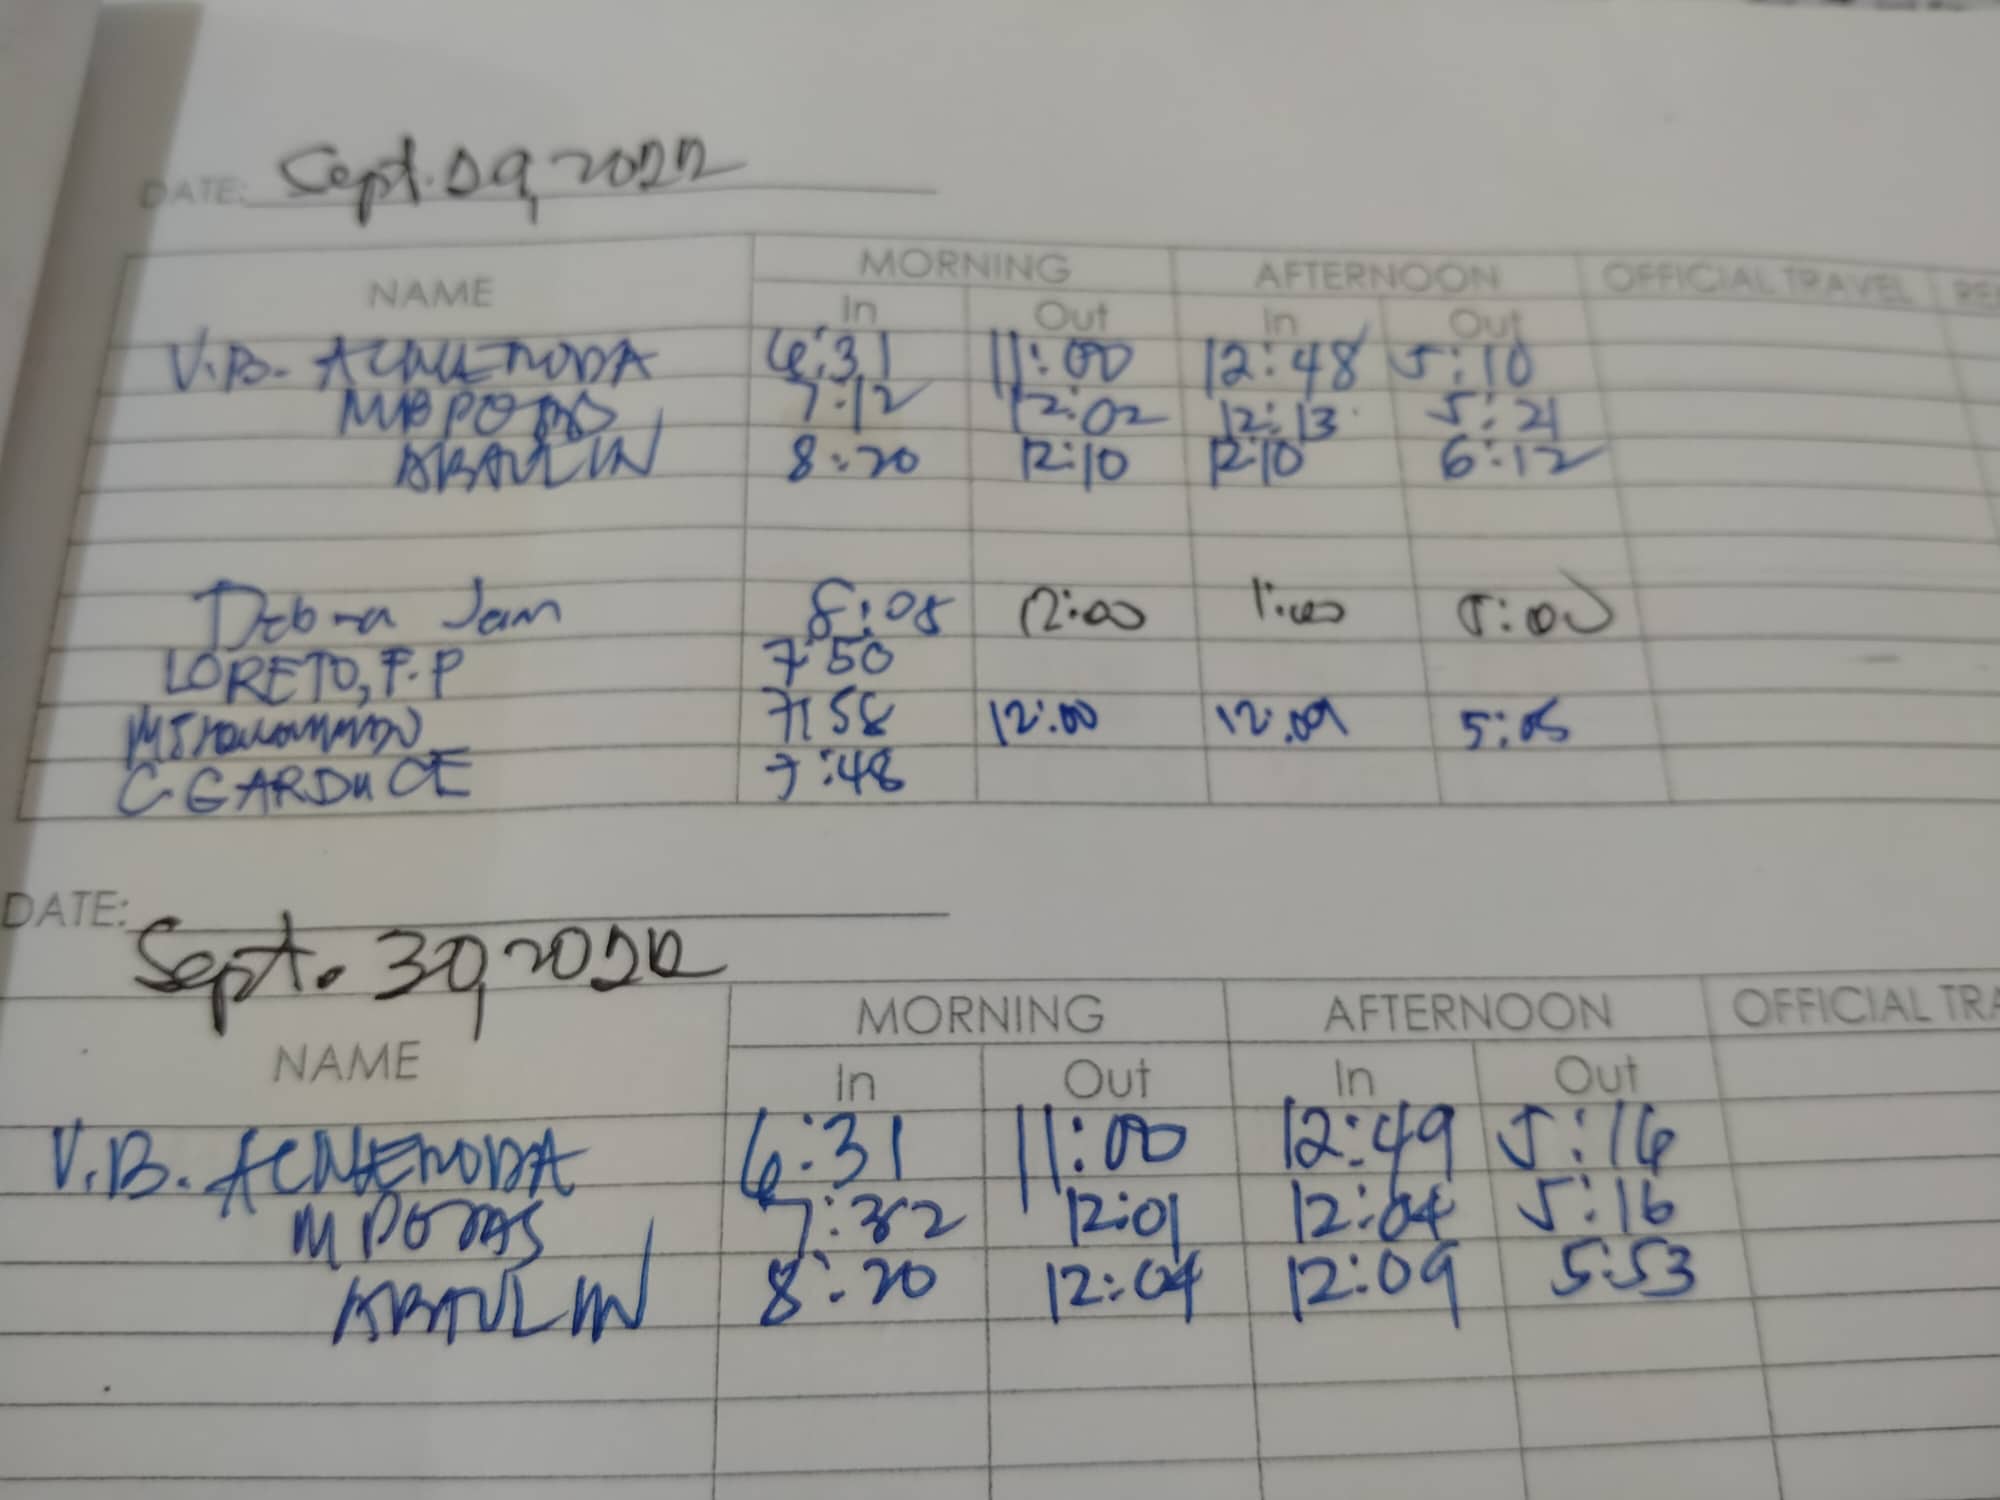 DATE: Sept. 29, 2022
NAME MORNING AFTERNOON OFFICIAL TRAVEL
In Out In Out
V.B. 6:31 11:00 12:48 5:10
MB PORAS 7:12 12:02 12:13 5:21
ABAULIN 8:20 12:10 12:10 6:12
Debra Jam 8:05 12:00 1:00 5:00
LORETO, F.P 7:50
7:58 12:00 12:09 5:05
C GARDUCE 7:48
DATE: Sept. 30, 2022
NAME MORNING AFTERNOON OFFICIAL TRA
In Out In Out
V.B. 6:31 11:00 12:49 5:16
M PORAS 7:32 12:01 12:04 5:16
ABAULIN 8:20 12:04 12:09 5:53